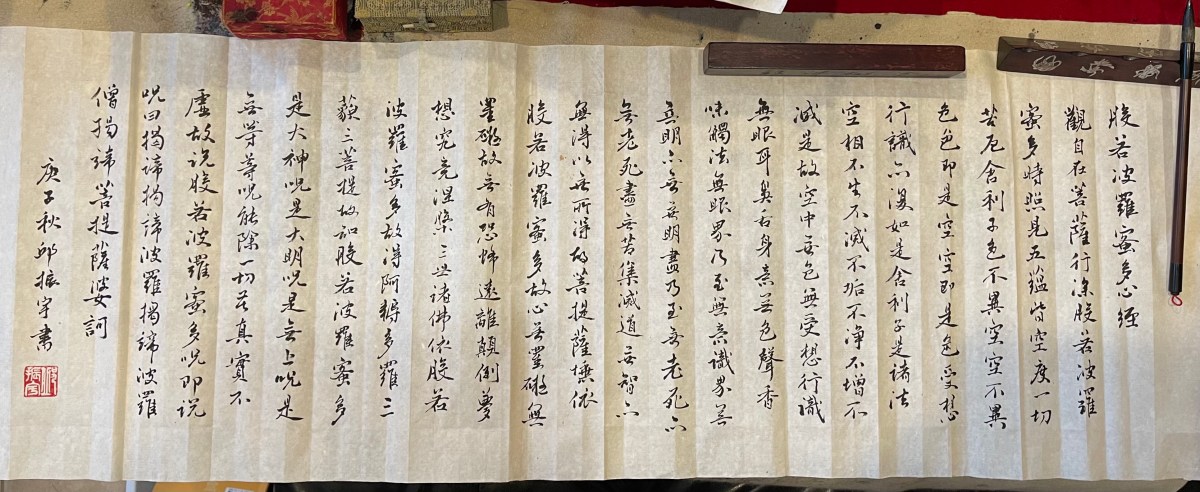 般若波羅蜜多心經
觀自在菩薩行深般若波羅
蜜多時照見五蘊皆空度一切
苦厄舍利子色不異空空不異
色色即是空空即是色受想
行識亦復如是舍利子是諸法
空相不生不滅不垢不淨不增不
減是故空中無色無受想行識
無眼耳鼻舌身意無色聲香
味觸法無眼界乃至無意識界無
無明亦無無明盡乃至無老死亦
無老死盡無苦集滅道無智亦
無得以無所得故菩提薩埵依
般若波羅蜜多故心無罣礙無
罣礙故無有恐怖遠離顛倒夢
想究竟涅槃三世諸佛依般若
波羅蜜多故得阿耨多羅三
藐三菩提故知般若波羅蜜多
是大神呪是大明呪是無上呪是
無等等呪能除一切苦真實不
虛故說般若波羅蜜多呪即說
呪曰揭諦揭諦波羅揭諦波羅
僧揭諦菩提薩婆訶
庚子秋邱振宇書